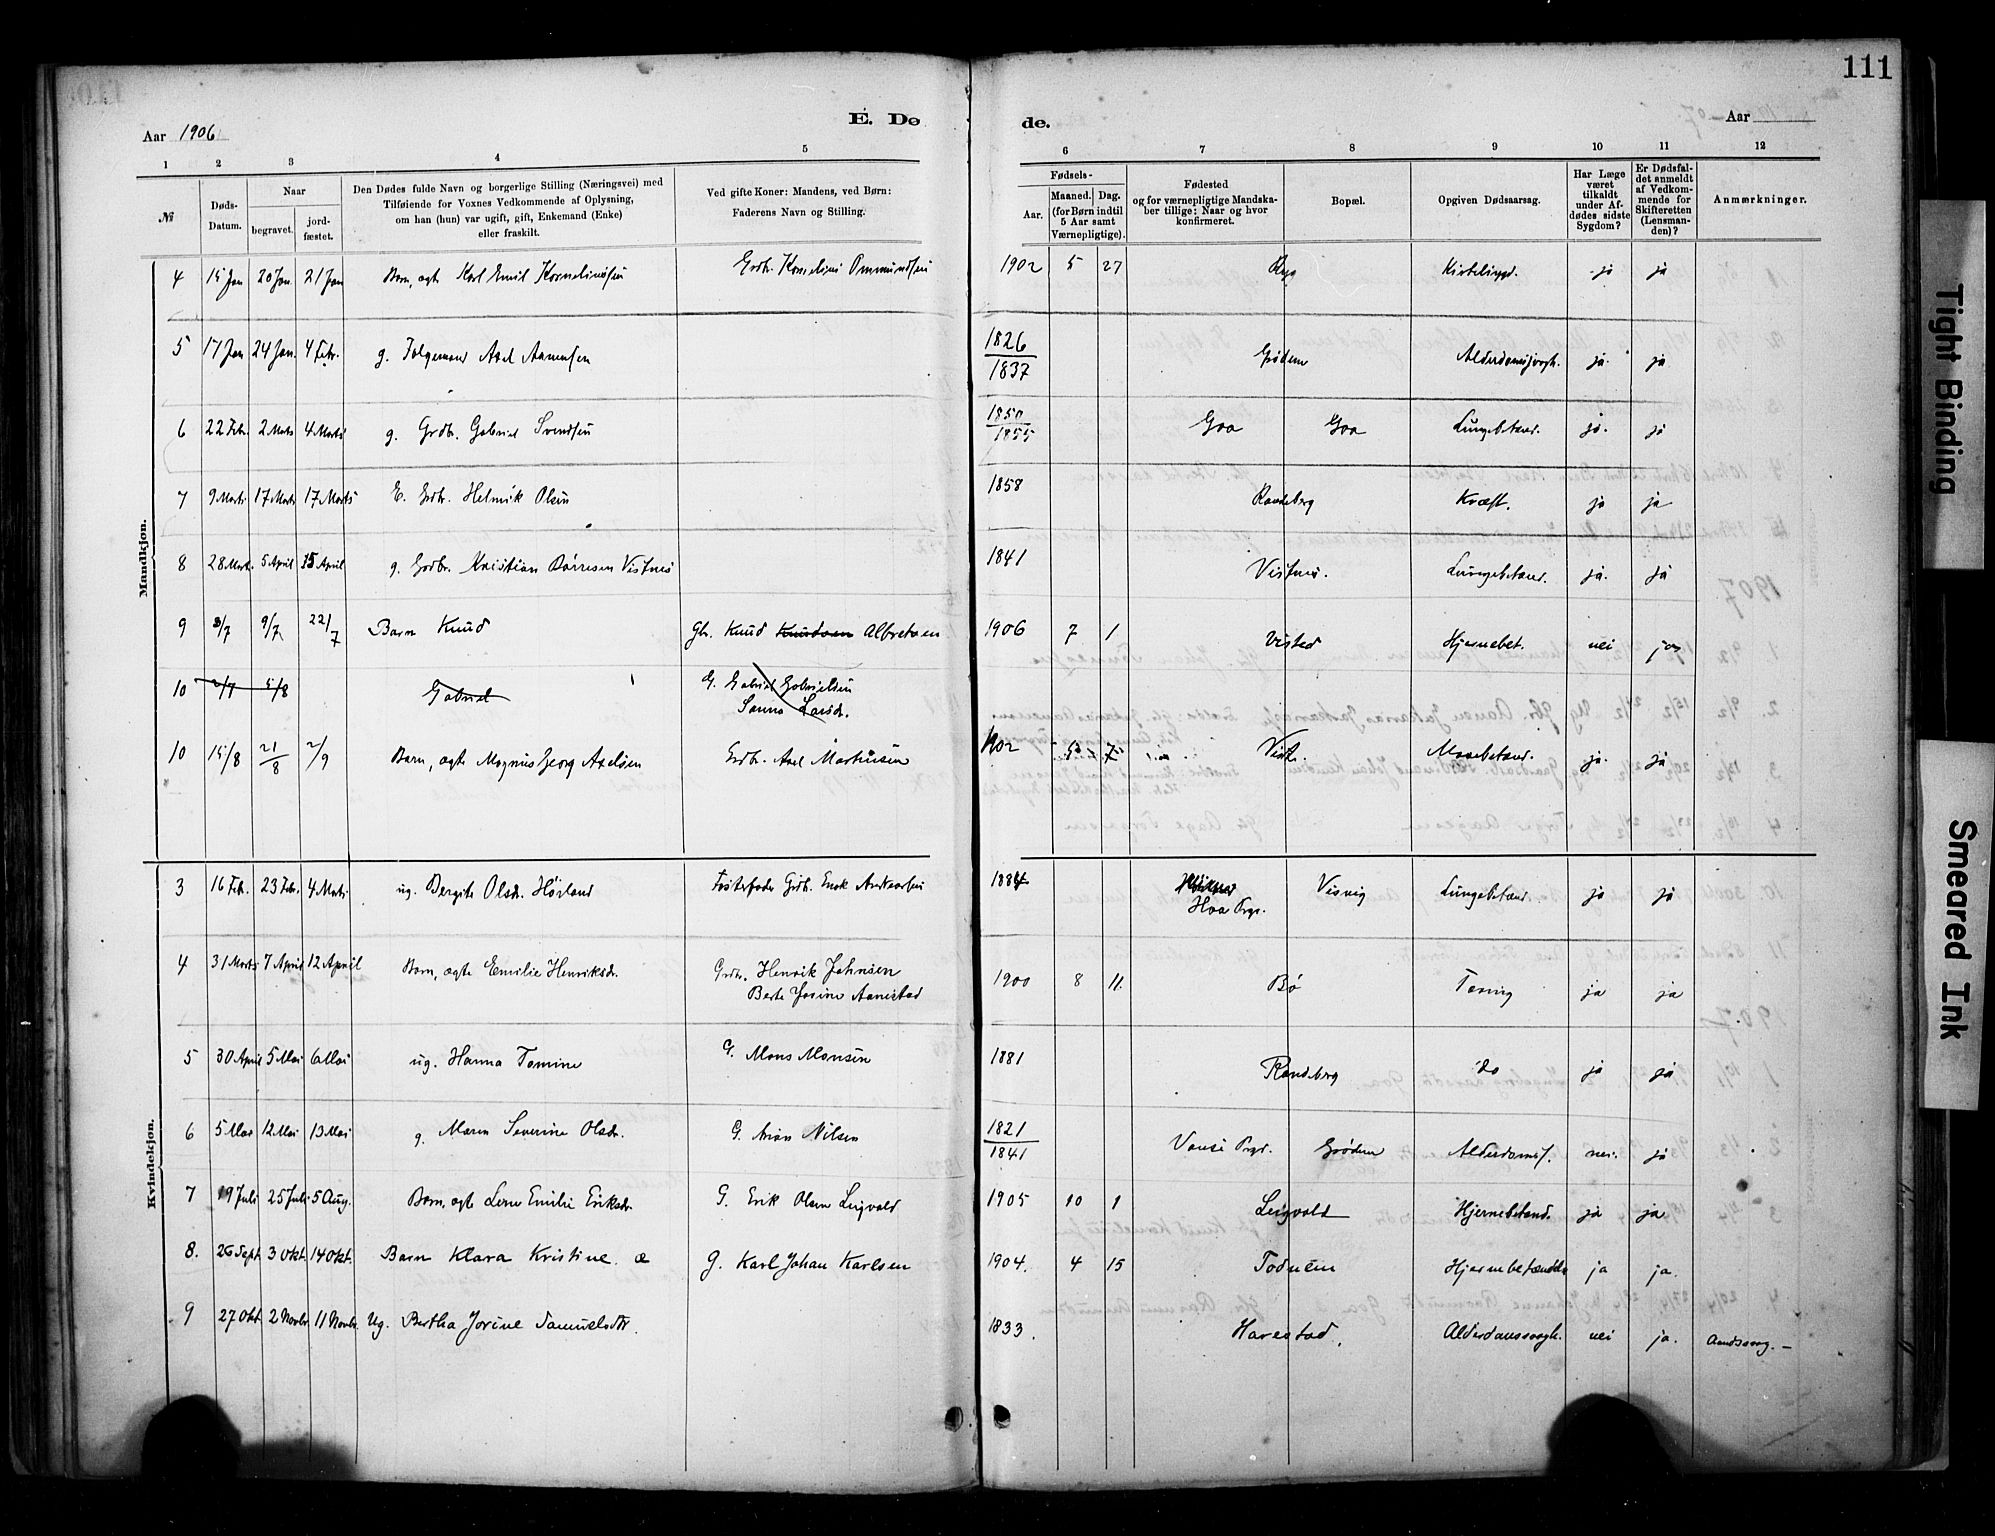 111
Aar 1906
E. Dø
de.
Aar
1 2 3 4 5
6 7 8 9 10 11 12
№
Døds-
Datum.
Naar
begravet.
jord-
fæstet.
Den Dødes fulde Navn og borgerlige Stilling (Næringsvei) med
Tilføiende for Voxnes Vedkommende af Oplysning,
om han (hun) var ugift, gift, Enkemand (Enke)
eller fraskilt.
Ved gifte Koner: Mandens, ved Børn:
Faderens Navn og Stilling.
Fødsels-
Aar.
Maaned.
Dag.
(for Børn indtil
5 Aar samt
Værnepligtige).
Fødested
og for værnepligtige Mandska-
ber tillige: Naar og hvor
konfirmeret.
Bopæl.
Opgiven Dødsaarsag.
Har Læge
været
tilkaldt
under Af-
dødes sidste
Sygdom?
Er Dødsfal-
det anmeldt
af Vedkom-
mende for
Skifteretten
(Lensman-
den)?
Anmærkninger.
Mandkjøn.
4 15 Jan 20 Jan. 21 Jan Barn, ægte Karl Emil Korneliussen Grdbr. Kornelius Ommundsen 1902 5 27 Ryg ja ja
5 17 Jan 24 Jan. 4 Febr. g. Axel Aanensen 1826/1837 Grødem ja. ja
6 22 Febr. 2 Marts 4 Marts g. Grdbr. Gabriel Svendsen 1850/1855 Goa Goa Lungebetænd. ja. ja
7 9 Marts 17 Marts 17 Marts E. Grdbr. Helmik Olsen 1858 Randeberg Kræft. ja ja
8 28 Marts 5 April 15 April g. Grdbr. Kristian Børresen Vistnes 1841 Vistnes. Lungebetænd. ja. ja
9 3/7 9/7 22/7 Barn Knud Gbr. Knud Knudsen Albretsen 1906 7 1 Visted Hjernebet. nei ja
10 2/7 5/8 Gabriel G. Gabriel Gabrielsen
Sanna Larsdr.
10 15/8 21/8 2/9 Barn, ægte Magnus Georg Axelsen Grdbr. Axel Martinsen 1902 5 7 Viste. Mavebetænd. ja. ja
Kvindekjøn.
3 16 Feb. 23 Febr. 4 Marts ug. Bergite Olsdr. Hørland Fosterfader Grdbr. Enok Andreassen 1884 Haa Prgs. Visvig Lungebetænd. ja ja
4 31 Marts 7 April 12 April Barn, ægte Emilie Henriksdr. Grdbr. Henrik Johnsen
Berte Josine Aanestad
1900 8 11. Bø Tæring ja ja
5 30 April 5 Mai 6 Mai ug. Hanna Tomine G. Mons Monsen 1881 Randeberg do ja ja
6 5 Mai 12 Mai 13 Mai g. Maren Severine Olsdr. G. Arian Nilsen 1821/1841 Vanse Prgs. Grødem Alderdomss. nei. ja
7 19 Juli 25 Juli 5 Aug. Barn, ægte Lene Emilie Eriksdr. G. Erik Olsen Leigvold 1905 10 1 Leigvold Hjernebetænd. ja ja
8. 26 Sept. 3 Okt. 14 Okt. Barn Klara Kristine. æ G. Karl Johan Karlsen 1904. 4 15 Todnem Hjernebetændelse ja ja.
9 27 Okt 2 Novbr. 11 Novbr. Ug. Bertha Jorine Samuelsdtr. 1833. Harestad. Alderdomssvagh. nei ja. Aandssvag. —
Tight Binding
Smeared Ink